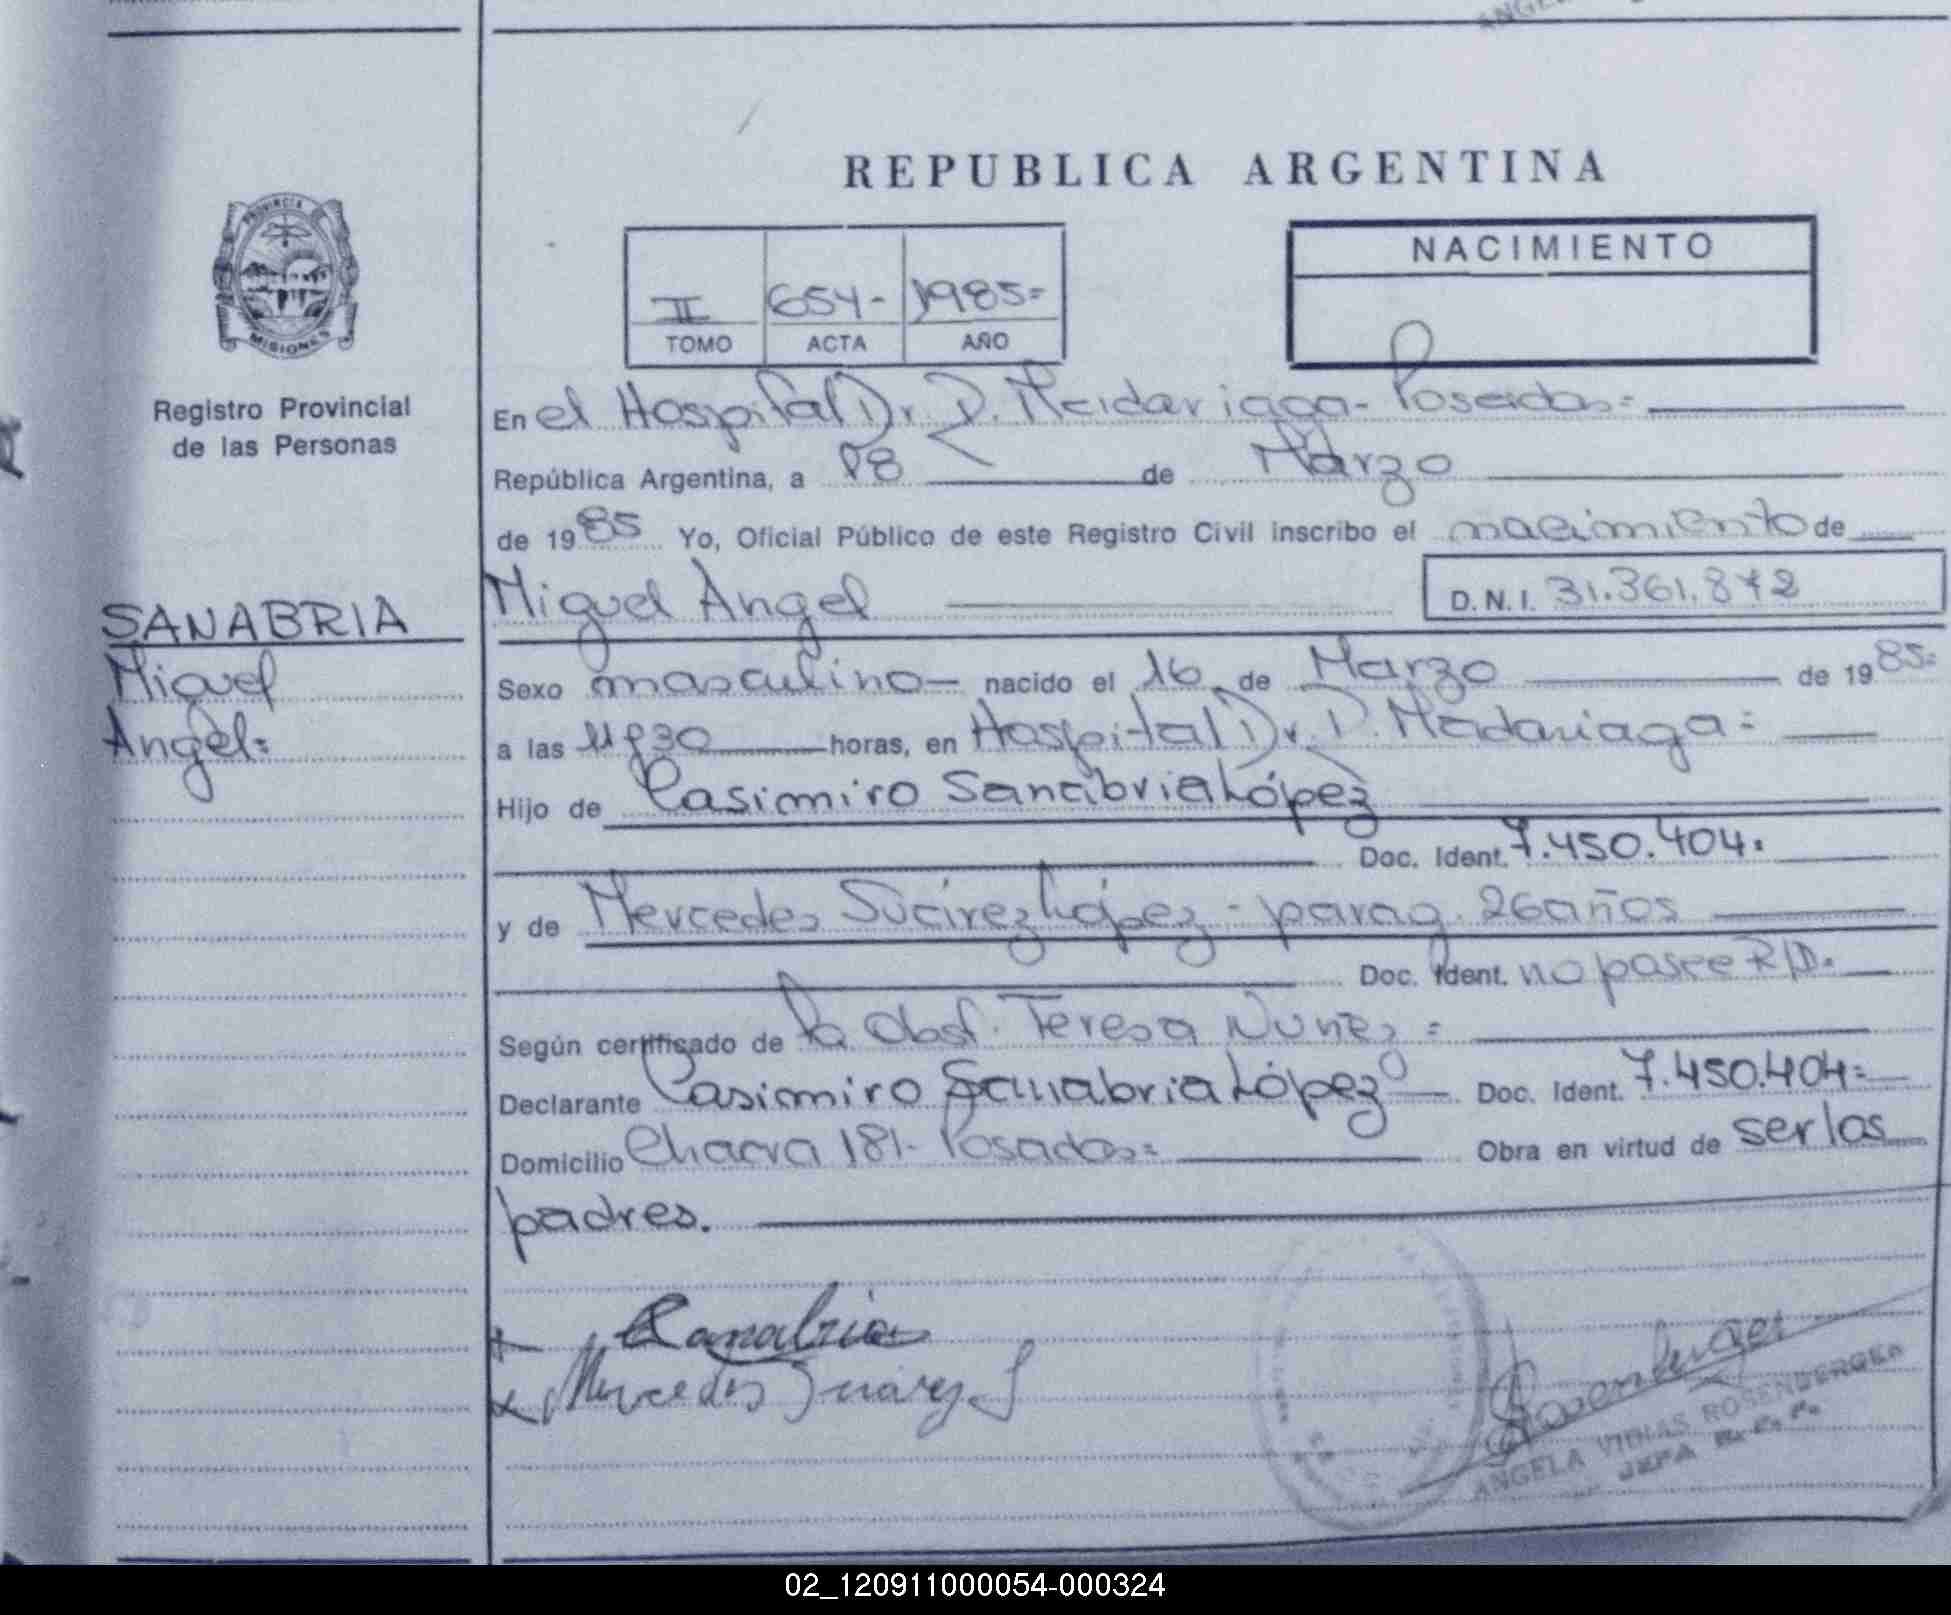 REPUBLICA ARGENTINA
PROVINCIA DE
MISIONES
Registro Provincial
de las Personas
II 654- 1985=
TOMO ACTA AÑO
NACIMIENTO
En el Hospital Dr. R. Madariaga- Posadas=
República Argentina, a 18 de Marzo
de 1985 Yo, Oficial Público de este Registro Civil inscribo el nacimiento de
SANABRIA
Miguel
Angel=
Miguel Angel D.N.I. 31.361.872
Sexo masculino- nacido el 16 de Marzo de 1985=
a las horas, en Hospital Dr. R. Madariaga=
Hijo de Casimiro Sanabria López
Doc. Ident. 7.450.404.
y de Mercedes Suárez López - parag. 26 años
Doc. Ident. no posee R/D.
Según certificado de la Obst. Teresa Nuñez =
Declarante Casimiro Sanabria López Doc. Ident. 7.450.404=
Domicilio Chacra 181- Posadas= Obra en virtud de ser los
padres.
Sanabria
Mercedes Suárez
Rosenberger
ANGELA VIDIAS ROSENBERGER
JEFA
02_120911000054-000324